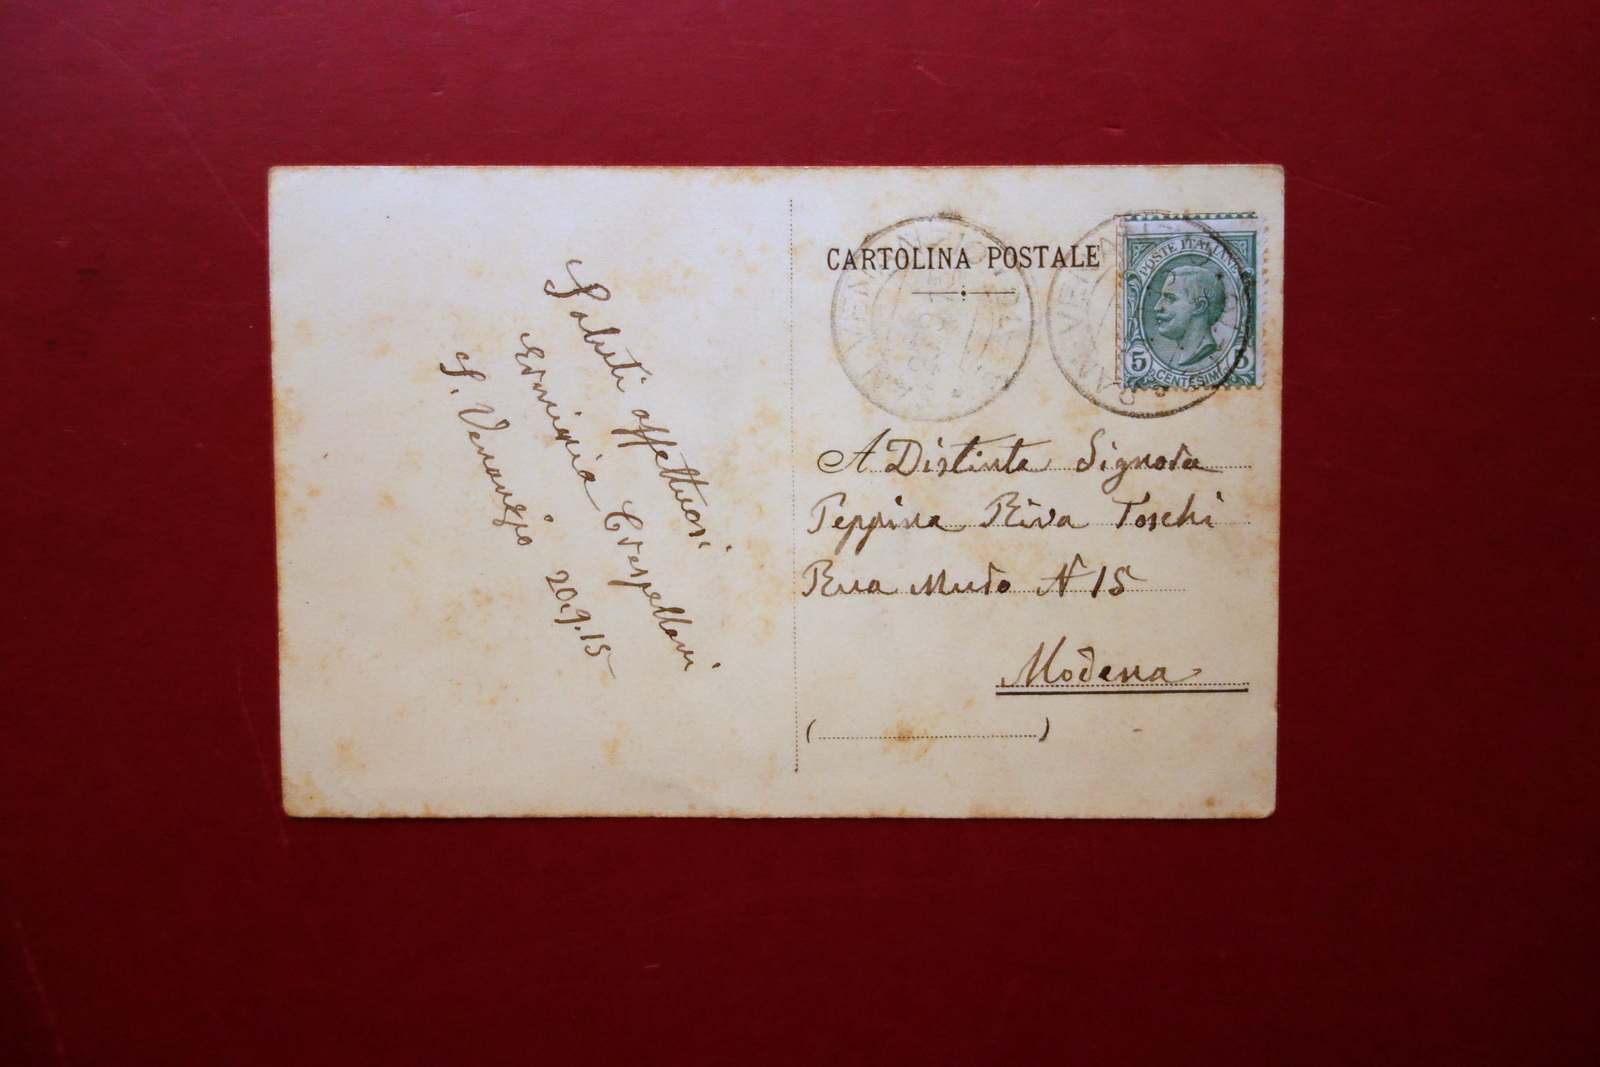 Saluti affettuosi
Erminia Crespellani
S. Venanzio 20.9.15
CARTOLINA POSTALE
POSTE ITALIANE
5 CENTESIMI 5
A Distinta Signora
Peppina Riva Toschi
Rua Muro N 15
Modena
( )